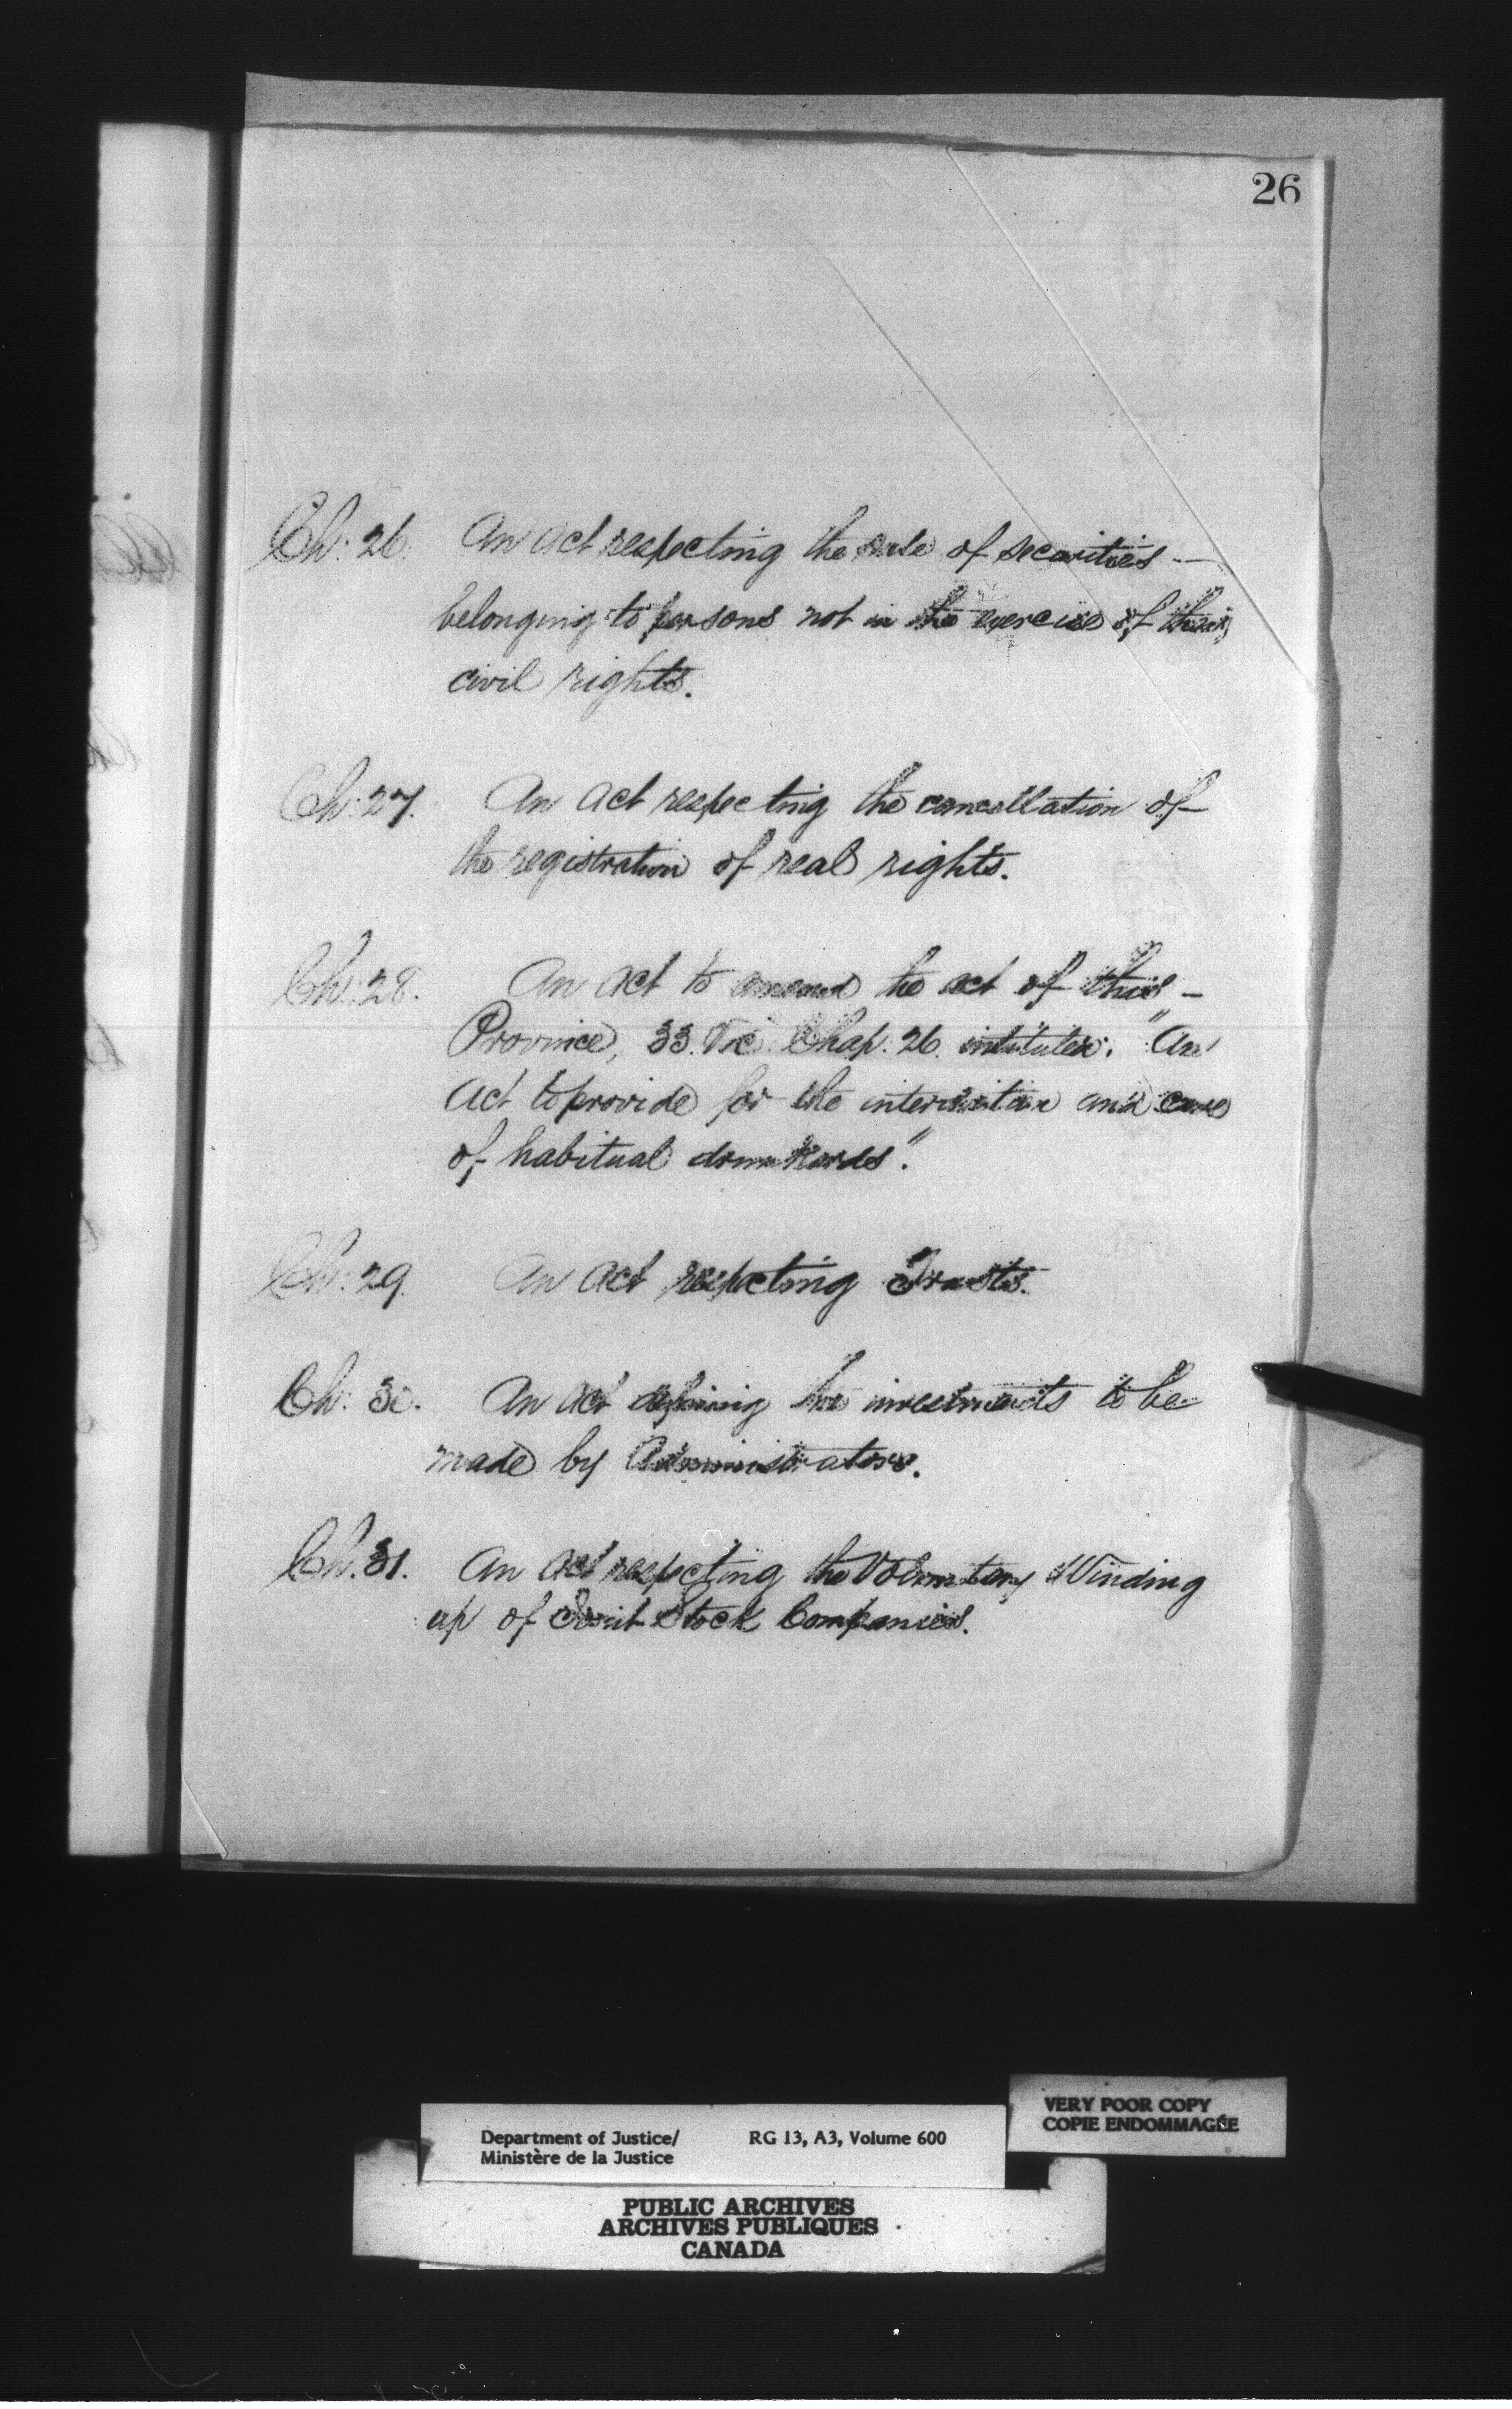 26
Ch: 26. An act respecting the sale of securities —
belonging to persons not in the exercise of their
civil rights.
Ch: 27. An act respecting the cancellation of
the registration of real rights.
Ch: 28. An act to amend the act of this —
Province, 33. Vic. Chap. 26. intituled: "An
Act to provide for the interdiction and cure
of habitual drunkards".
Ch: 29. An act respecting Trusts.
Ch: 30. An act defining the investments to be
made by Administrators.
Ch. 31. An act respecting the Voluntary Winding
up of Joint Stock Companies.
VERY POOR COPY
COPIE ENDOMMAGÉE
Department of Justice/ RG 13, A3, Volume 600
Ministère de la Justice
PUBLIC ARCHIVES
ARCHIVES PUBLIQUES
CANADA